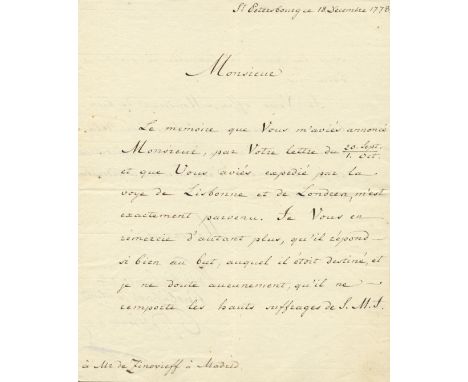 St Petersbourg ce 18 Décembre 1778.
Monsieur
Le mémoire que Vous m'aviés annoncé
Monsieur, par Votre lettre du 20. Sept. / 1. Oct.
et que Vous aviés expédié par la
voye de Lisbonne et de Londres, m'est
exactement parvenu. Je Vous en
rémercie d'autant plus, qu'il répond
si bien au but, auquel il étoit destiné, et
je ne doute aucunement, qu'il ne
remporte les hauts suffrages de S. M. I.
à Mr de Zinovieff à Madrid.